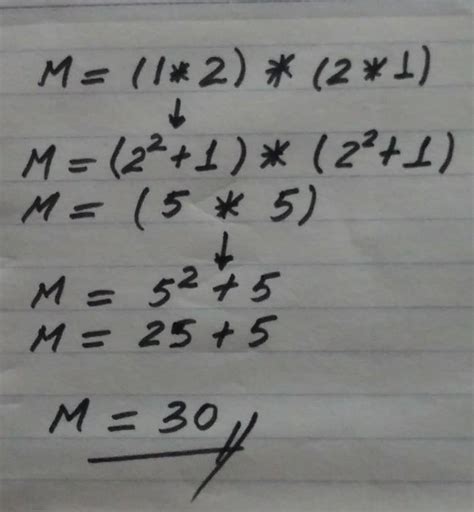 M = (1 * 2) * (2 * 1)
↓
M = (2² + 1) * (2² + 1)
M = (5 * 5)
↓
M = 5² + 5
M = 25 + 5
M = 30 //